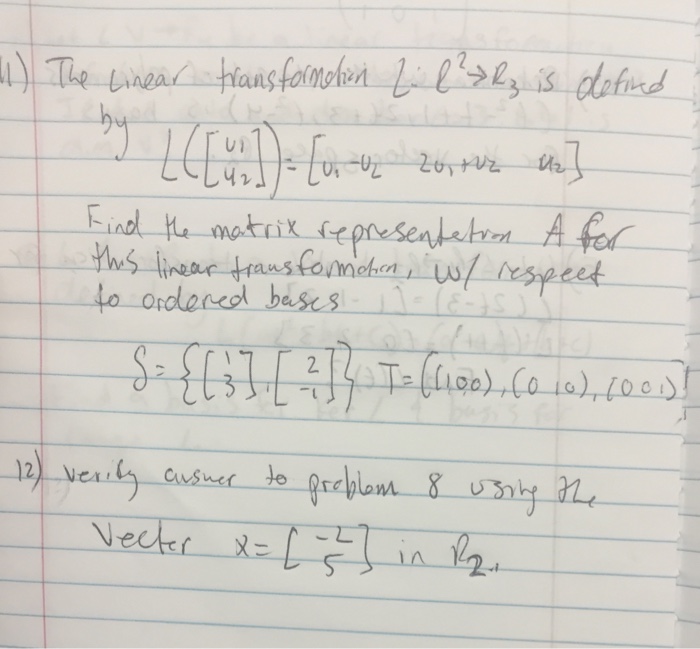 11) The Linear transformation L: R²→R₃ is defined
by L([u₁ u₂]) = [u₁ -u₂ 2u₁+u₂ u₂]
Find the matrix representation A for
this linear transformation, w/ respect
to ordered bases
S = {[1 3], [2 -1]} T = {(1 0 0), (0 1 0), (0 0 1)}
12) verify answer to problem 8 using the
Vector x = [-2 5] in R₂.